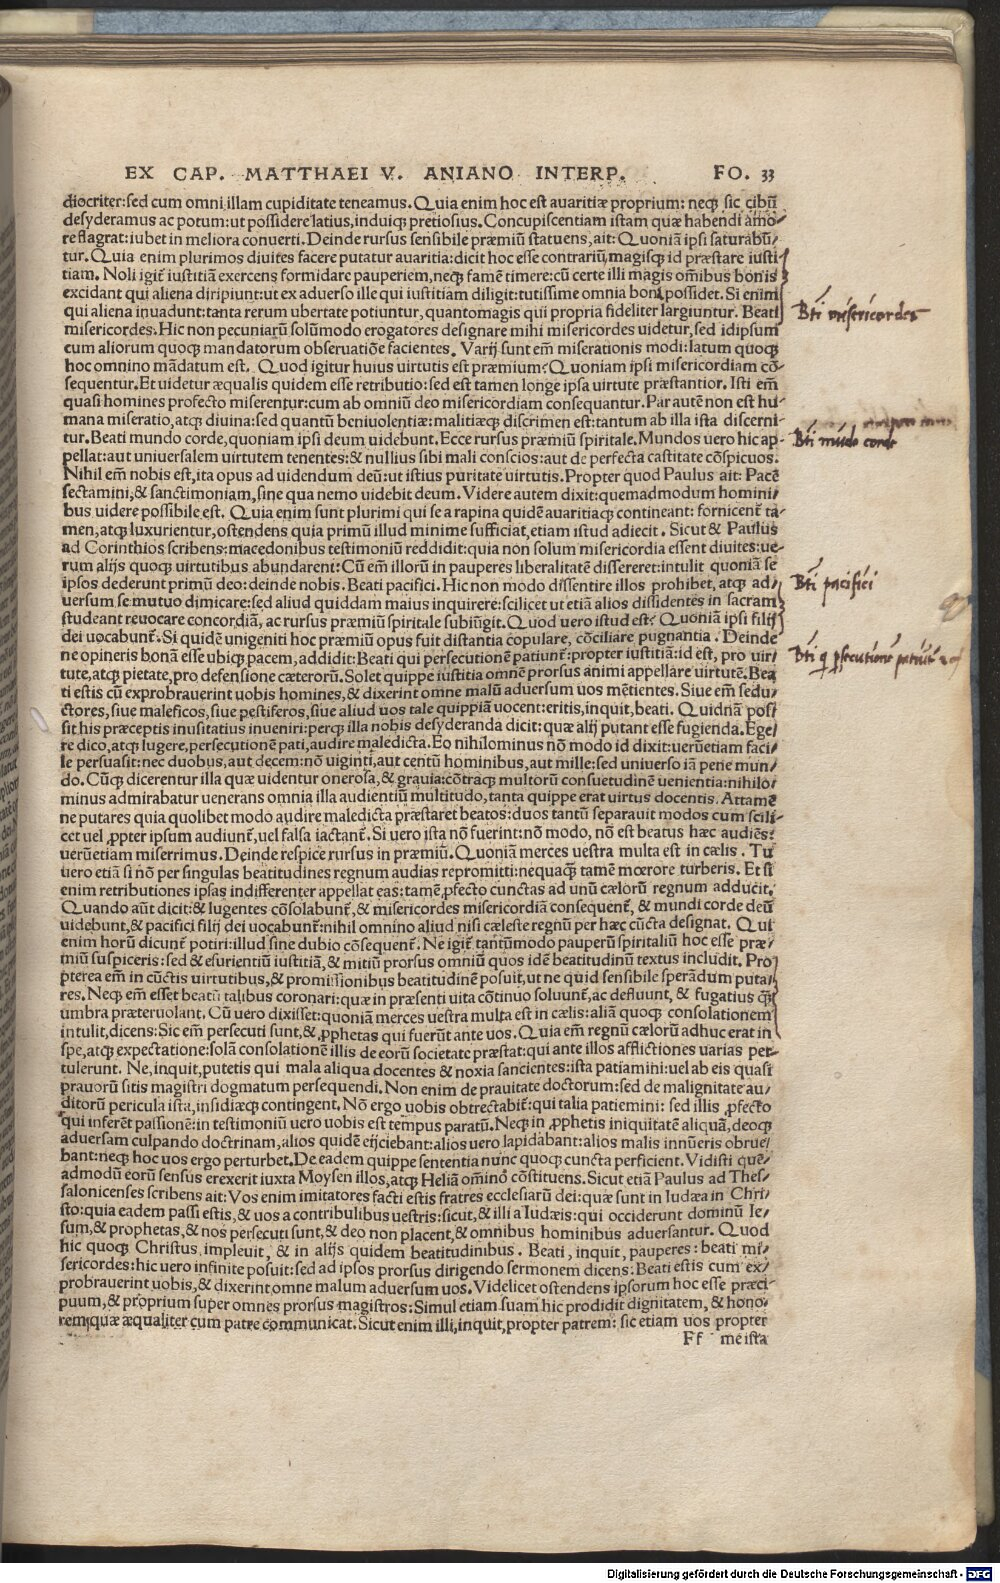 EX CAP. MATTHAEI V. ANIANO INTERP. FO. 33
diocriter:sed cum omni illam cupiditate teneamus. Quia enim hoc est auaritiæ proprium: neqꝫ sic cibũ
desyderamus ac potum:ut possidere latius,induiqꝫ pretiosius. Concupiscentiam istam quæ habendi amo/
re flagrat:iubet in meliora conuerti. Deinde rursus sensibile præmiũ statuens,ait: Quoniã ipsi saturabũ/
tur. Quia enim plurimos diuites facere putatur auaritia:dicit hoc esse contrariũ,magisqꝫ id præstare iusti/
tiam. Noli igit̃ iustitiã exercens formidare pauperiem,neqꝫ famẽ timere:cũ certe illi magis om̃ibus bonis
excidant qui aliena diripiunt:ut ex aduerso ille qui iustitiam diligit:tutissime omnia bona possidet. Si enim
qui aliena inuadunt:tanta rerum ubertate potiuntur, quantomagis qui propria fideliter largiuntur. Beati
misericordes. Hic non pecuniarũ solũmodo erogatores designare mihi misericordes uidetur,sed idipsum
cum aliorum quoqꝫ mandatorum obseruatiõe facientes. Varij sunt em̃ miserationis modi:latum quoqꝫ
hoc omnino mãdatum est. Quod igitur huius uirtutis est præmium? Quoniam ipsi misericordiam cõ/
sequentur. Et uidetur æqualis quidem esse retributio:sed est tamen longe ipsa uirtute præstantior. Isti em̃
quasi homines profecto miserentur:cum ab omniũ deo misericordiam consequantur. Par autẽ non est hu/
mana miseratio,atqꝫ diuina:sed quantũ beniuolentiæ:malitiæqꝫ discrimen est:tantum ab illa ista discerni/
tur. Beati mundo corde,quoniam ipsi deum uidebunt. Ecce rursus præmiũ spiritale. Mundos uero hic ap/
pellat:aut uniuersalem uirtutem tenentes:& nullius sibi mali conscios:aut de perfecta castitate cõspicuos.
Nihil em̃ nobis est,ita opus ad uidendum deũ:ut istius puritate uirtutis. Propter quod Paulus ait: Pacẽ
sectamini,& sanctimoniam,sine qua nemo uidebit deum. Videre autem dixit:quemadmodum homini/
bus uidere possibile est. Quia enim sunt plurimi qui se a rapina quidẽ auaritiaqꝫ contineant: fornicent̃ ta/
men,atqꝫ luxurientur,ostendens quia primũ illud minime sufficiat,etiam istud adiecit. Sicut & Paulus
ad Corinthios scribens:macedonibus testimoniũ reddidit:quia non solum misericordia essent diuites:ue/
rum alijs quoqꝫ uirtutibus abundarent: Cũ em̃ illorũ in pauperes liberalitatẽ dissereret:intulit quoniã se
ipsos dederunt primũ deo:deinde nobis. Beati pacifici. Hic non modo dissentire illos prohibet, atqꝫ ad/
uersum se mutuo dimicare:sed aliud quiddam maius inquirere:scilicet ut etiã alios dissidentes in sacram
studeant reuocare concordiã, ac rursus præmiũ spiritale subiũgit. Quod uero istud est? Quoniã ipsi filij
dei uocabunt̃. Si quidẽ unigeniti hoc præmiũ opus fuit distantia copulare, cõciliare pugnantia. Deinde
ne opineris bonã esse ubiqꝫ pacem,addidit: Beati qui persecutionẽ patiunt̃:propter iustitiã:id est, pro uir/
tute,atqꝫ pietate,pro defensione cæterorũ. Solet quippe iustitia omnẽ prorsus animi appellare uirtutẽ. Bea
ti estis cũ exprobrauerint uobis homines,& dixerint omne malũ aduersum uos mẽtientes. Siue em̃ sedu/
ctores,siue maleficos,siue pestiferos,siue aliud uos tale quippiã uocent:eritis,inquit,beati. Quidnã pos/
sit his præceptis inusitatius inueniri:perqꝫ illa nobis desyderanda dicit:quæ alij putant esse fugienda. Ege/
re dico,atqꝫ lugere,persecutionẽ pati,audire maledicta. Eo nihilominus nõ modo id dixit:uerũetiam faci/
le persuasit:nec duobus,aut decem:nõ uiginti,aut centũ hominibus,aut mille:sed uniuerso iã pene mun/
do. Cũqꝫ dicerentur illa quæ uidentur onerosa,& grauia:cõtraqꝫ multorũ consuetudinẽ uenientia:nihilo/
minus admirabatur uenerans omnia illa audientiũ multitudo,tanta quippe erat uirtus docentis. Attamẽ
ne putares quia quolibet modo audire maledicta præstaret beatos:duos tantũ separauit modos cum scili/
cet uel ꝓpter ipsum audiunt̃,uel falsa iactant̃. Si uero ista nõ fuerint:nõ modo, nõ est beatus hæc audiẽs:
uerũetiam miserrimus. Deinde respice rursus in præmiũ. Quoniã merces uestra multa est in cælis. Tu
uero etiã si nõ per singulas beatitudines regnum audias repromitti:nequaqꝫ̃ tamẽ mœrore turberis. Et si
enim retributiones ipsas indifferenter appellat eas:tamẽ ꝓfecto cunctas ad unũ cælorũ regnum adducit.
Quando aũt dicit:& lugentes cõsolabunt̃,& misericordes misericordiã consequent̃, & mundi corde deũ
uidebunt,& pacifici filij dei uocabunt̃:nihil omnino aliud nisi cæleste regnũ per hæc cũcta designat. Qui
enim horũ dicunt̃ potiri:illud sine dubio cõsequent̃. Ne igit̃ tantũmodo pauperũ spiritaliũ hoc esse præ/
miũ suspiceris:sed & esurientiũ iustitiã,& mitiũ prorsus omniũ quos idẽ beatitudinũ textus includit. Pro
pterea em̃ in cũctis uirtutibus,& promissionibus beatitudinẽ posuit,ut ne quid sensibile sperãdum puta/
res. Neqꝫ em̃ esset beatũ talibus coronari:quæ in præsenti uita cõtinuo soluunt̃,ac defluunt, & fugatius qꝫ̃
umbra præteruolant. Cũ uero dixisset:quoniã merces uestra multa est in cælis:aliã quoqꝫ consolationem
intulit,dicens:Sic em̃ persecuti sunt,& ꝓphetas qui fuerũt ante uos. Quia em̃ regnũ cælorũ adhuc erat in
spe,atqꝫ expectatione:solã consolationẽ illis de eorũ societate præstat:qui ante illos afflictiones uarias per/
tulerunt. Ne,inquit,putetis qui mala aliqua docentes & noxia sancientes:ista patiamini:uel ab eis quasi
prauorũ sitis magistri dogmatum persequendi. Non enim de prauitate doctorum:sed de malignitate au/
ditorũ pericula ista,insidiæqꝫ contingent. Nõ ergo uobis obtrectabit̃:qui talia patiemini: sed illis ꝓfecto
qui inferẽt passionẽ:in testimoniũ uero uobis est tempus paratũ. Neqꝫ in ꝓphetis iniquitatẽ aliquã,deoqꝫ
aduersam culpando doctrinam,alios quidẽ eijciebant:alios uero lapidabant:alios malis innũeris obrue/
bant:neqꝫ hoc uos ergo perturbet. De eadem quippe sententia nunc quoqꝫ cuncta perficient. Vidisti quẽ/
admodũ eorũ sensus erexerit iuxta Moysen illos,atqꝫ Heliã om̃ino cõstituens. Sicut etiã Paulus ad Thes/
salonicenses scribens ait: Vos enim imitatores facti estis fratres ecclesiarũ dei:quæ sunt in Iudæa in Chri/
sto:quia eadem passi estis,& uos a contribulibus uestris:sicut,& illi a Iudæis:qui occiderunt dominũ Ie/
sum,& prophetas,& nos persecuti sunt,& deo non placent,& omnibus hominibus aduersantur. Quod
hic quoqꝫ Christus impleuit, & in alijs quidem beatitudinibus. Beati, inquit, pauperes: beati mi/
sericordes:hic uero infinite posuit:sed ad ipsos prorsus dirigendo sermonem dicens: Beati estis cum ex/
probrauerint uobis,& dixerint omne malum aduersum uos. Videlicet ostendens ipsorum hoc esse præci/
puum,& proprium super omnes prorsus magistros: Simul etiam suam hic prodidit dignitatem, & hono/
rem,quæ æqualiter cum patre communicat. Sicut enim illi,inquit,propter patrem: sic etiam uos propter
Ff me ista
Bti misericordes
Bti mũdo corde
Bti pacifici
Bti q̃ ꝑsecutionẽ patiũt̃
Digitalisierung gefördert durch die Deutsche Forschungsgemeinschaft - DFG